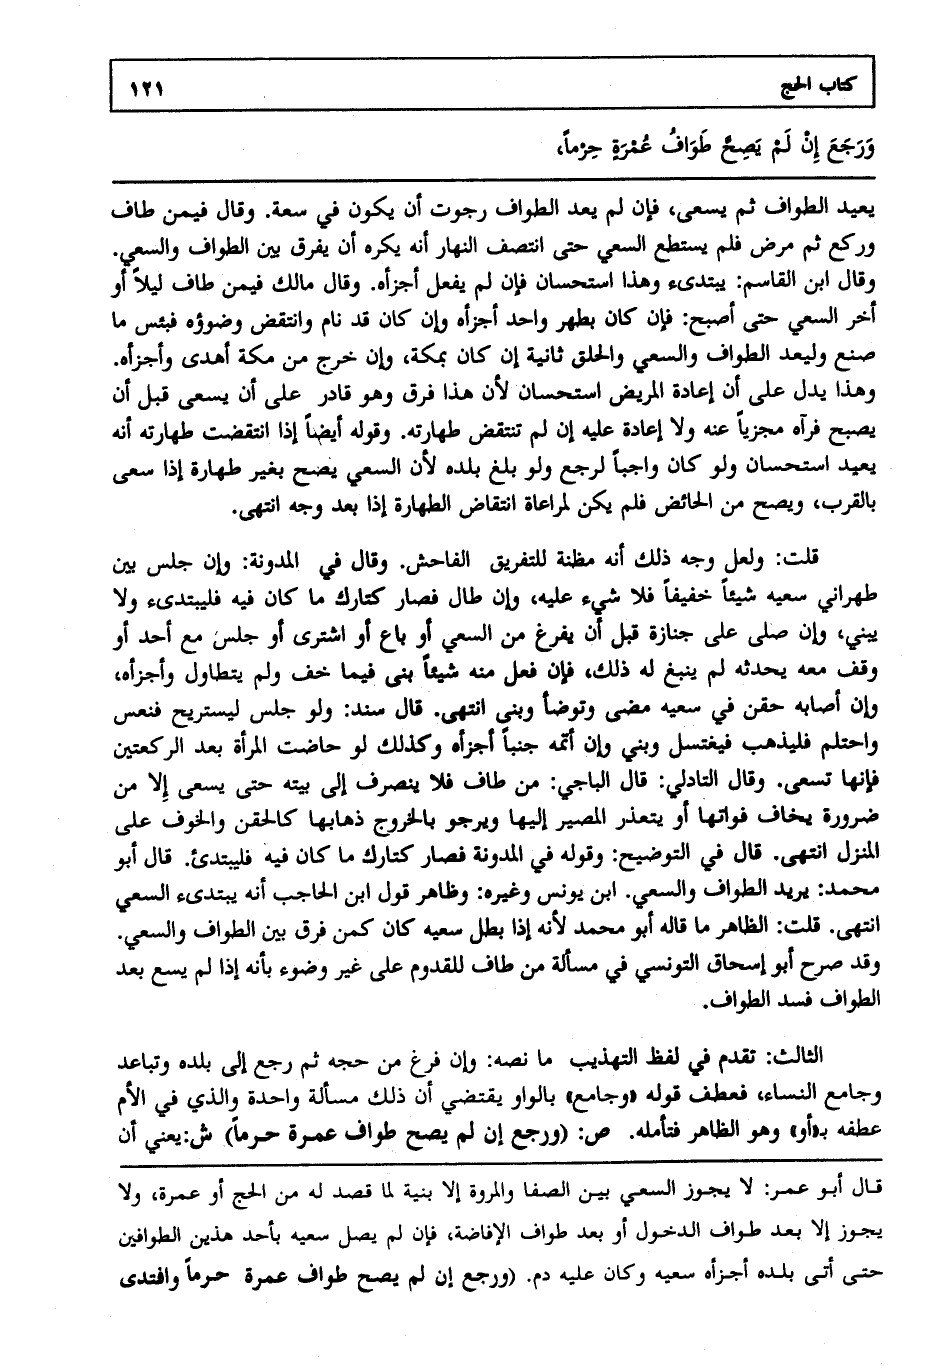 كتاب الحج ١٢١
وَرَجَعَ إِنْ لَمْ يَصِحَّ طَوَافُ عُمْرَةٍ حِرْماً،
يعيد الطواف ثم يسعى، فإن لم يعد الطواف رجوت أن يكون في سعة. وقال فيمن طاف
وركع ثم مرض فلم يستطع السعي حتى انتصف النهار أنه يكره أن يفرق بين الطواف والسعي.
وقال ابن القاسم: يبتدىء وهذا استحسان فإن لم يفعل أجزأه. وقال مالك فيمن طاف ليلاً أو
أخر السعي حتى أصبح: فإن كان بطهر واحد أجزأه وإن كان قد نام وانتقض وضوؤه فبئس ما
صنع وليعد الطواف والسعي والحلق ثانية إن كان بمكة، وإن خرج من مكة أهدى وأجزأه.
وهذا يدل على أن إعادة المريض استحسان لأن هذا فرق وهو قادر على أن يسعى قبل أن
يصبح فرآه مجزياً عنه ولا إعادة عليه إن لم تنتقض طهارته. وقوله أيضاً إذا انتقضت طهارته أنه
يعيد استحسان ولو كان واجباً لرجع ولو بلغ بلده لأن السعي يصح بغير طهارة إذا سعى
بالقرب، ويصح من الحائض فلم يكن لمراعاة انتقاض الطهارة إذا بعد وجه انتهى.
قلت: ولعل وجه ذلك أنه مظنة للتفريق الفاحش. وقال في المدونة: وإن جلس بين
طهراني سعيه شيئاً خفيفاً فلا شيء عليه، وإن طال فصار كتارك ما كان فيه فليبتدىء ولا
يبني، وإن صلى على جنازة قبل أن يفرغ من السعي أو باع أو اشترى أو جلس مع أحد أو
وقف معه يحدثه لم ينبغ له ذلك، فإن فعل منه شيئاً بنى فيما خف ولم يتطاول وأجزأه،
وإن أصابه حقن في سعيه مضى وتوضأ وبنى انتهى. قال سند: ولو جلس ليستريح فنعس
واحتلم فليذهب فيغتسل وبني وإن أتمه جنباً أجزأه وكذلك لو حاضت المرأة بعد الركعتين
فإنها تسعى. وقال التادلي: قال الباجي: من طاف فلا ينصرف إلى بيته حتى يسعى إلا من
ضرورة يخاف فواتها أو يتعذر المصير إليها ويرجو بالخروج ذهابها كالحقن والخوف على
المنزل انتهى. قال في التوضيح: وقوله في المدونة فصار كتارك ما كان فيه فليبتدئ. قال أبو
محمد: يريد الطواف والسعي. ابن يونس وغيره: وظاهر قول ابن الحاجب أنه يبتدىء السعي
انتهى. قلت: الظاهر ما قاله أبو محمد لأنه إذا بطل سعيه كان كمن فرق بين الطواف والسعي.
وقد صرح أبو إسحاق التونسي في مسألة من طاف للقدوم على غير وضوء بأنه إذا لم يسع بعد
الطواف فسد الطواف.
الثالث: تقدم في لفظ التهذيب ما نصه: وإن فرغ من حجه ثم رجع إلى بلده وتباعد
وجامع النساء، فعطف قوله «وجامع» بالواو يقتضي أن ذلك مسألة واحدة والذي في الأم
عطفه بـ«أو» وهو الظاهر فتأمله. ص: (ورجع إن لم يصح طواف عمرة حرماً) ش:يعني أن
قال أبو عمر: لا يجوز السعي بين الصفا والمروة إلا بنية لما قصد له من الحج أو عمرة، ولا
يجوز إلا بعد طواف الدخول أو بعد طواف الإفاضة، فإن لم يصل سعيه بأحد هذين الطوافين
حتى أتى بلده أجزأه سعيه وكان عليه دم. (ورجع إن لم يصح طواف عمرة حرماً وافتدى